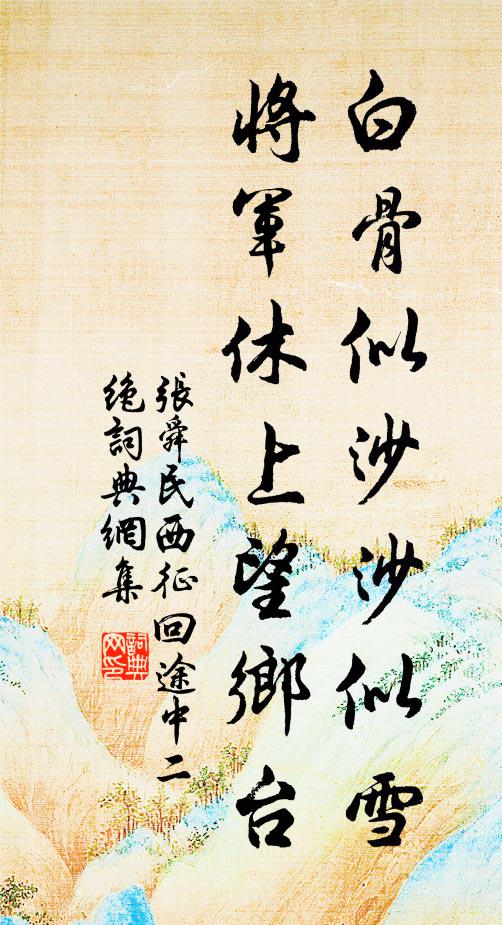 白骨似沙沙似雪
將軍休上望鄉台
張舜民西征回途中二
絶詞典網集
詞典
网印